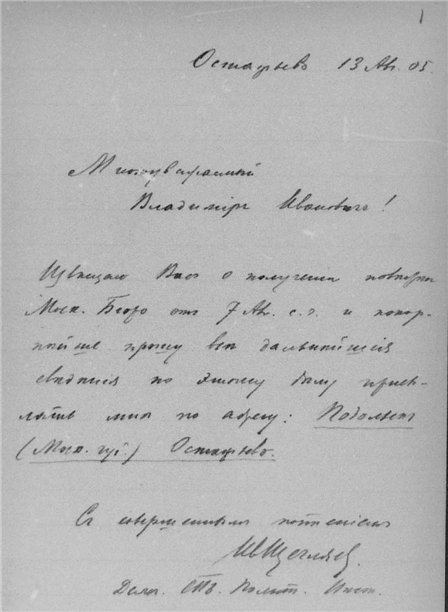 1
Остафьево 13 Ав. 05
Многоуважаемый
Владиміръ Ивановичъ!
Извѣщаю Васъ о полученіи повѣстки
Моск. Бюро отъ 7 Ав. с. г. и покор-
нѣйше прошу всѣ дальнѣйшія
свѣдѣнія по этому дѣлу присы-
лать мнѣ по адресу: Подольскъ
(Моск. губ.) Остафьево.
Съ совершеннымъ почтеніемъ
Ив Щегляев
СПб. Полит. Инст.